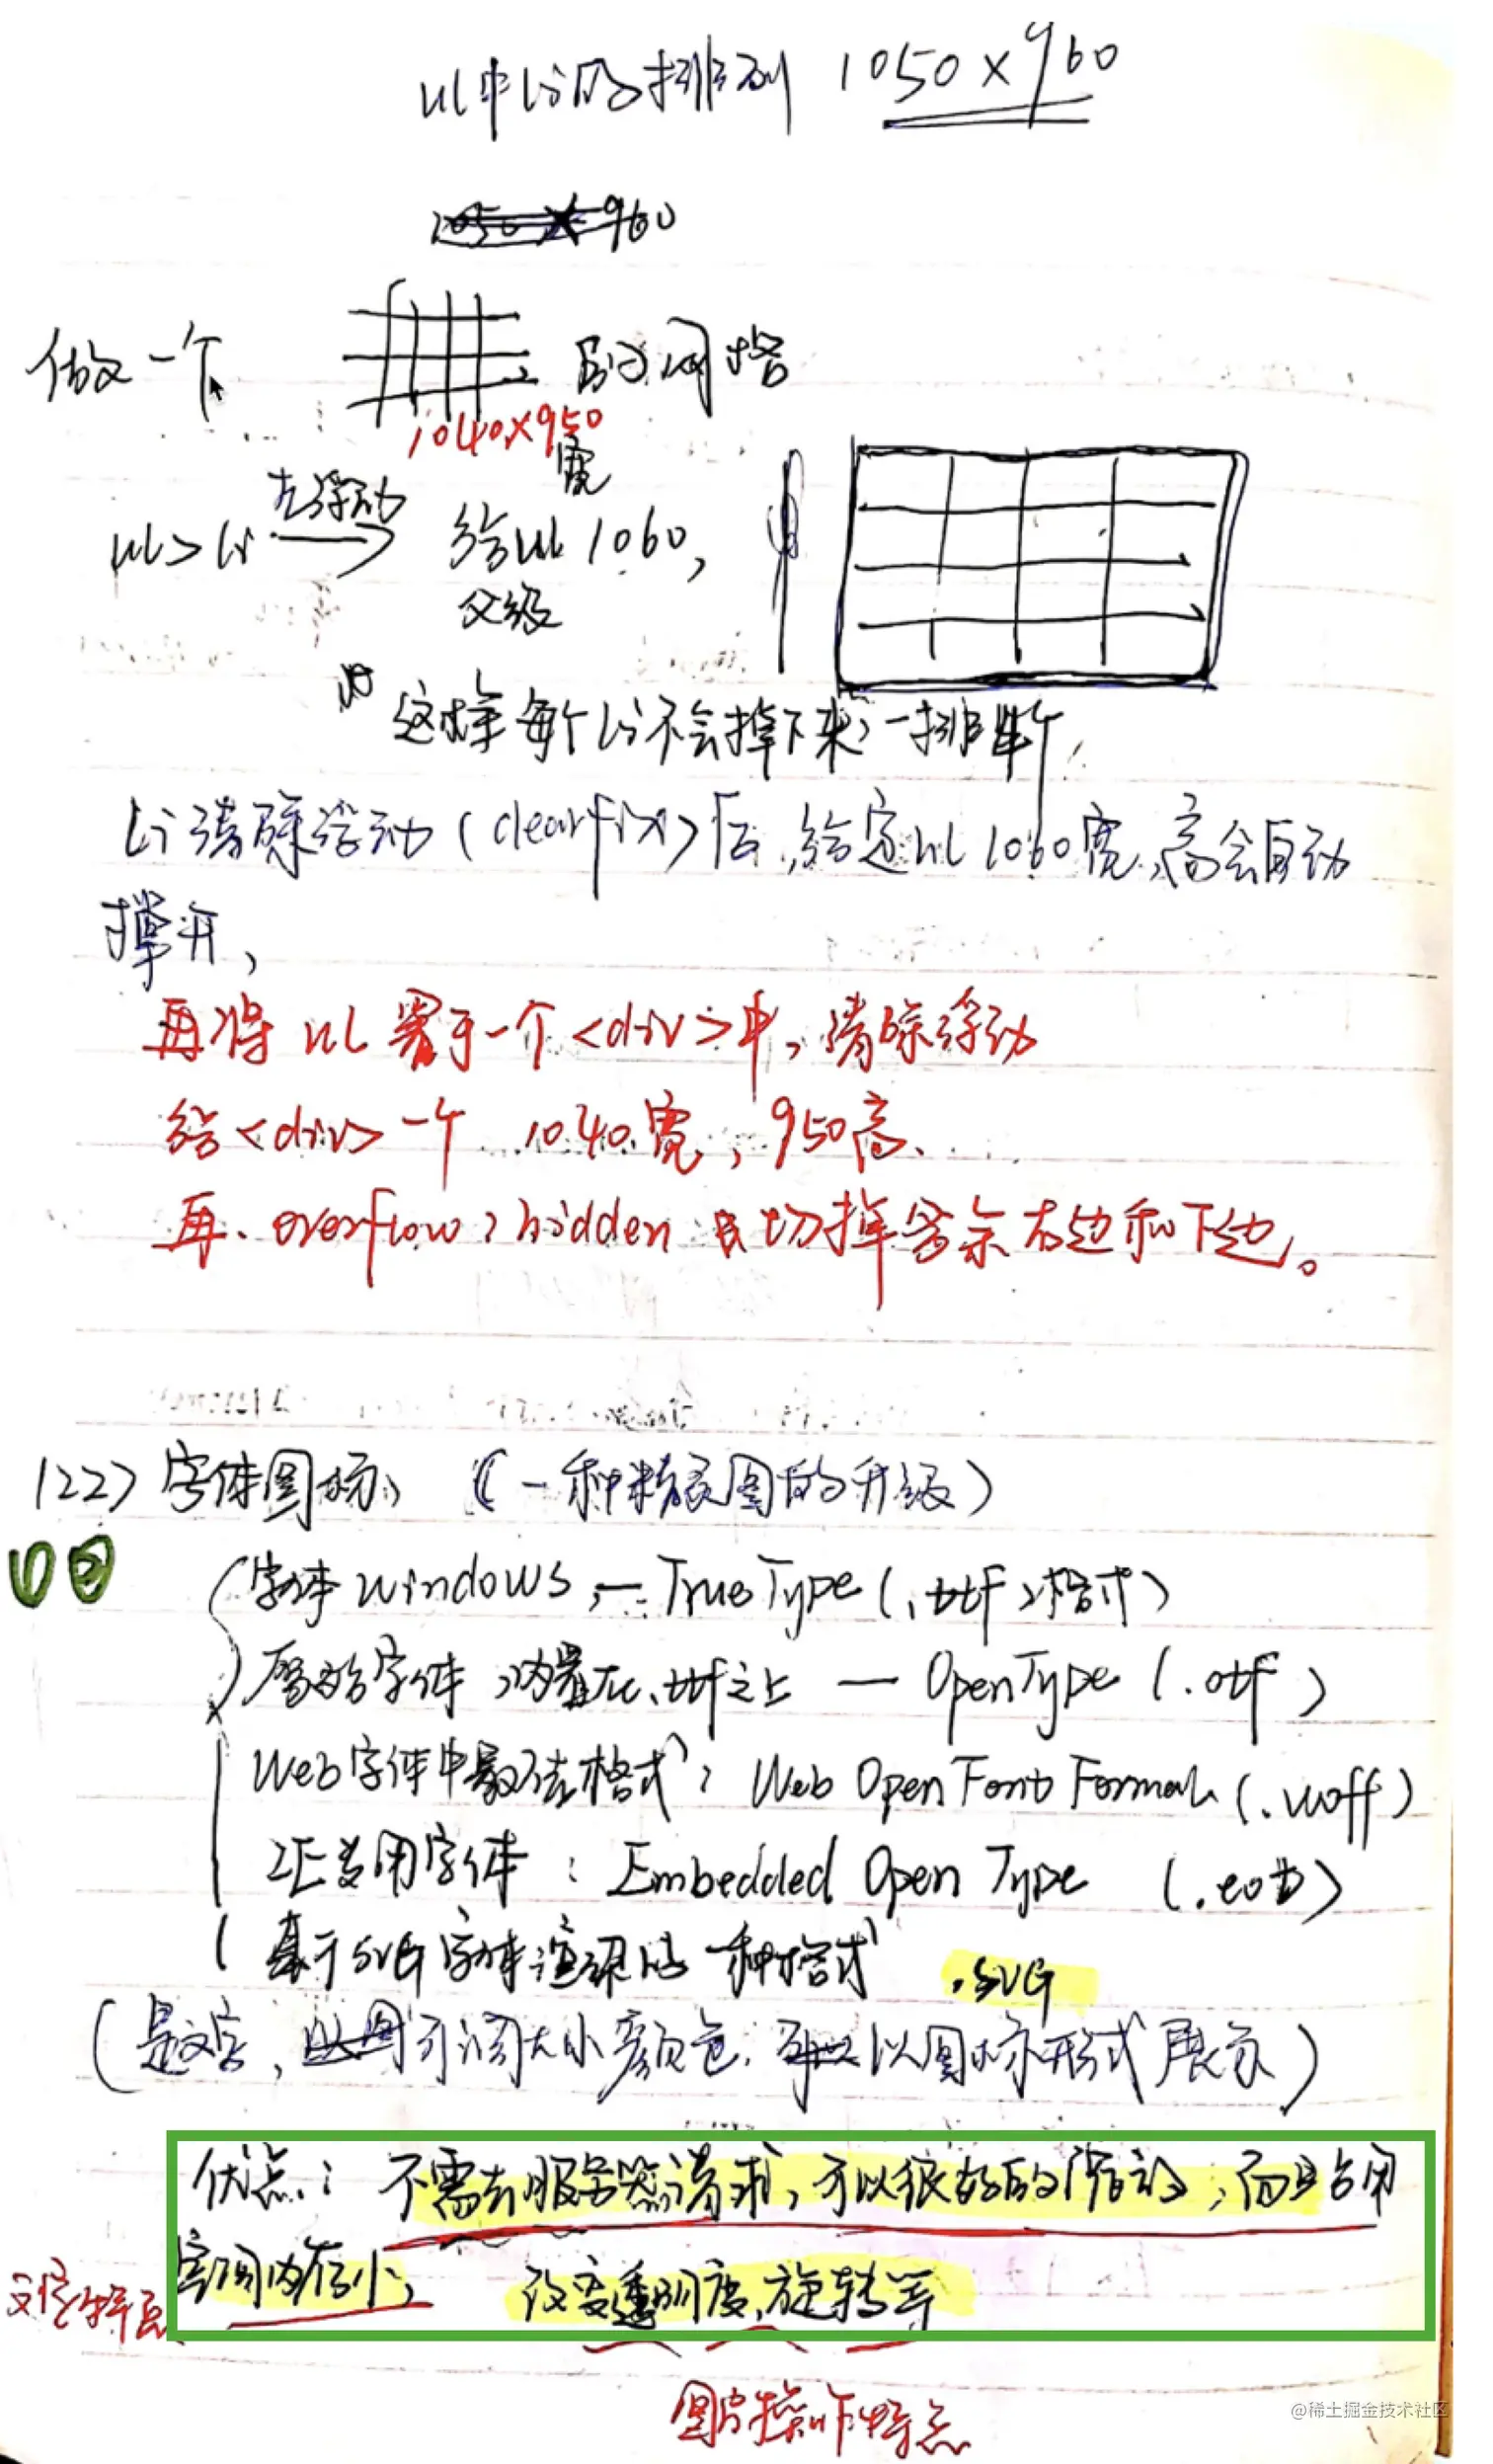 ul中li的排列 1050×960
1050×960
做一个 的网格
1040×950
宽
左浮动
ul>li 给ul 1060,
父级
这样每个li不会掉下来,一排4个,
li清除浮动(clearfix)后,给定ul 1060宽,高会自动
撑开,
再将ul置于一个<div>中,清除浮动
给<div>一个 1040宽,950高、
再、overflow:hidden 切掉多余右边和下边。
122)字体图标:(一种精灵图的升级)
字体windows — TrueType(.ttf 格式)
原始字体,内置在.ttf之上 — OpenType(.otf)
Web字体中最佳格式:Web Open Font Format(.woff)
IE专用字体:Embedded Open Type (.eot)
基于SVG字体渲染的一种格式 .SVG
(是文字,可调大小颜色.以图标形式展示)
优点:不需去服务器请求,可以很好的缩放,而且占用
空间内存小, 改变透明度、旋转等
文字特点
图片操作特点
@稀土掘金技术社区